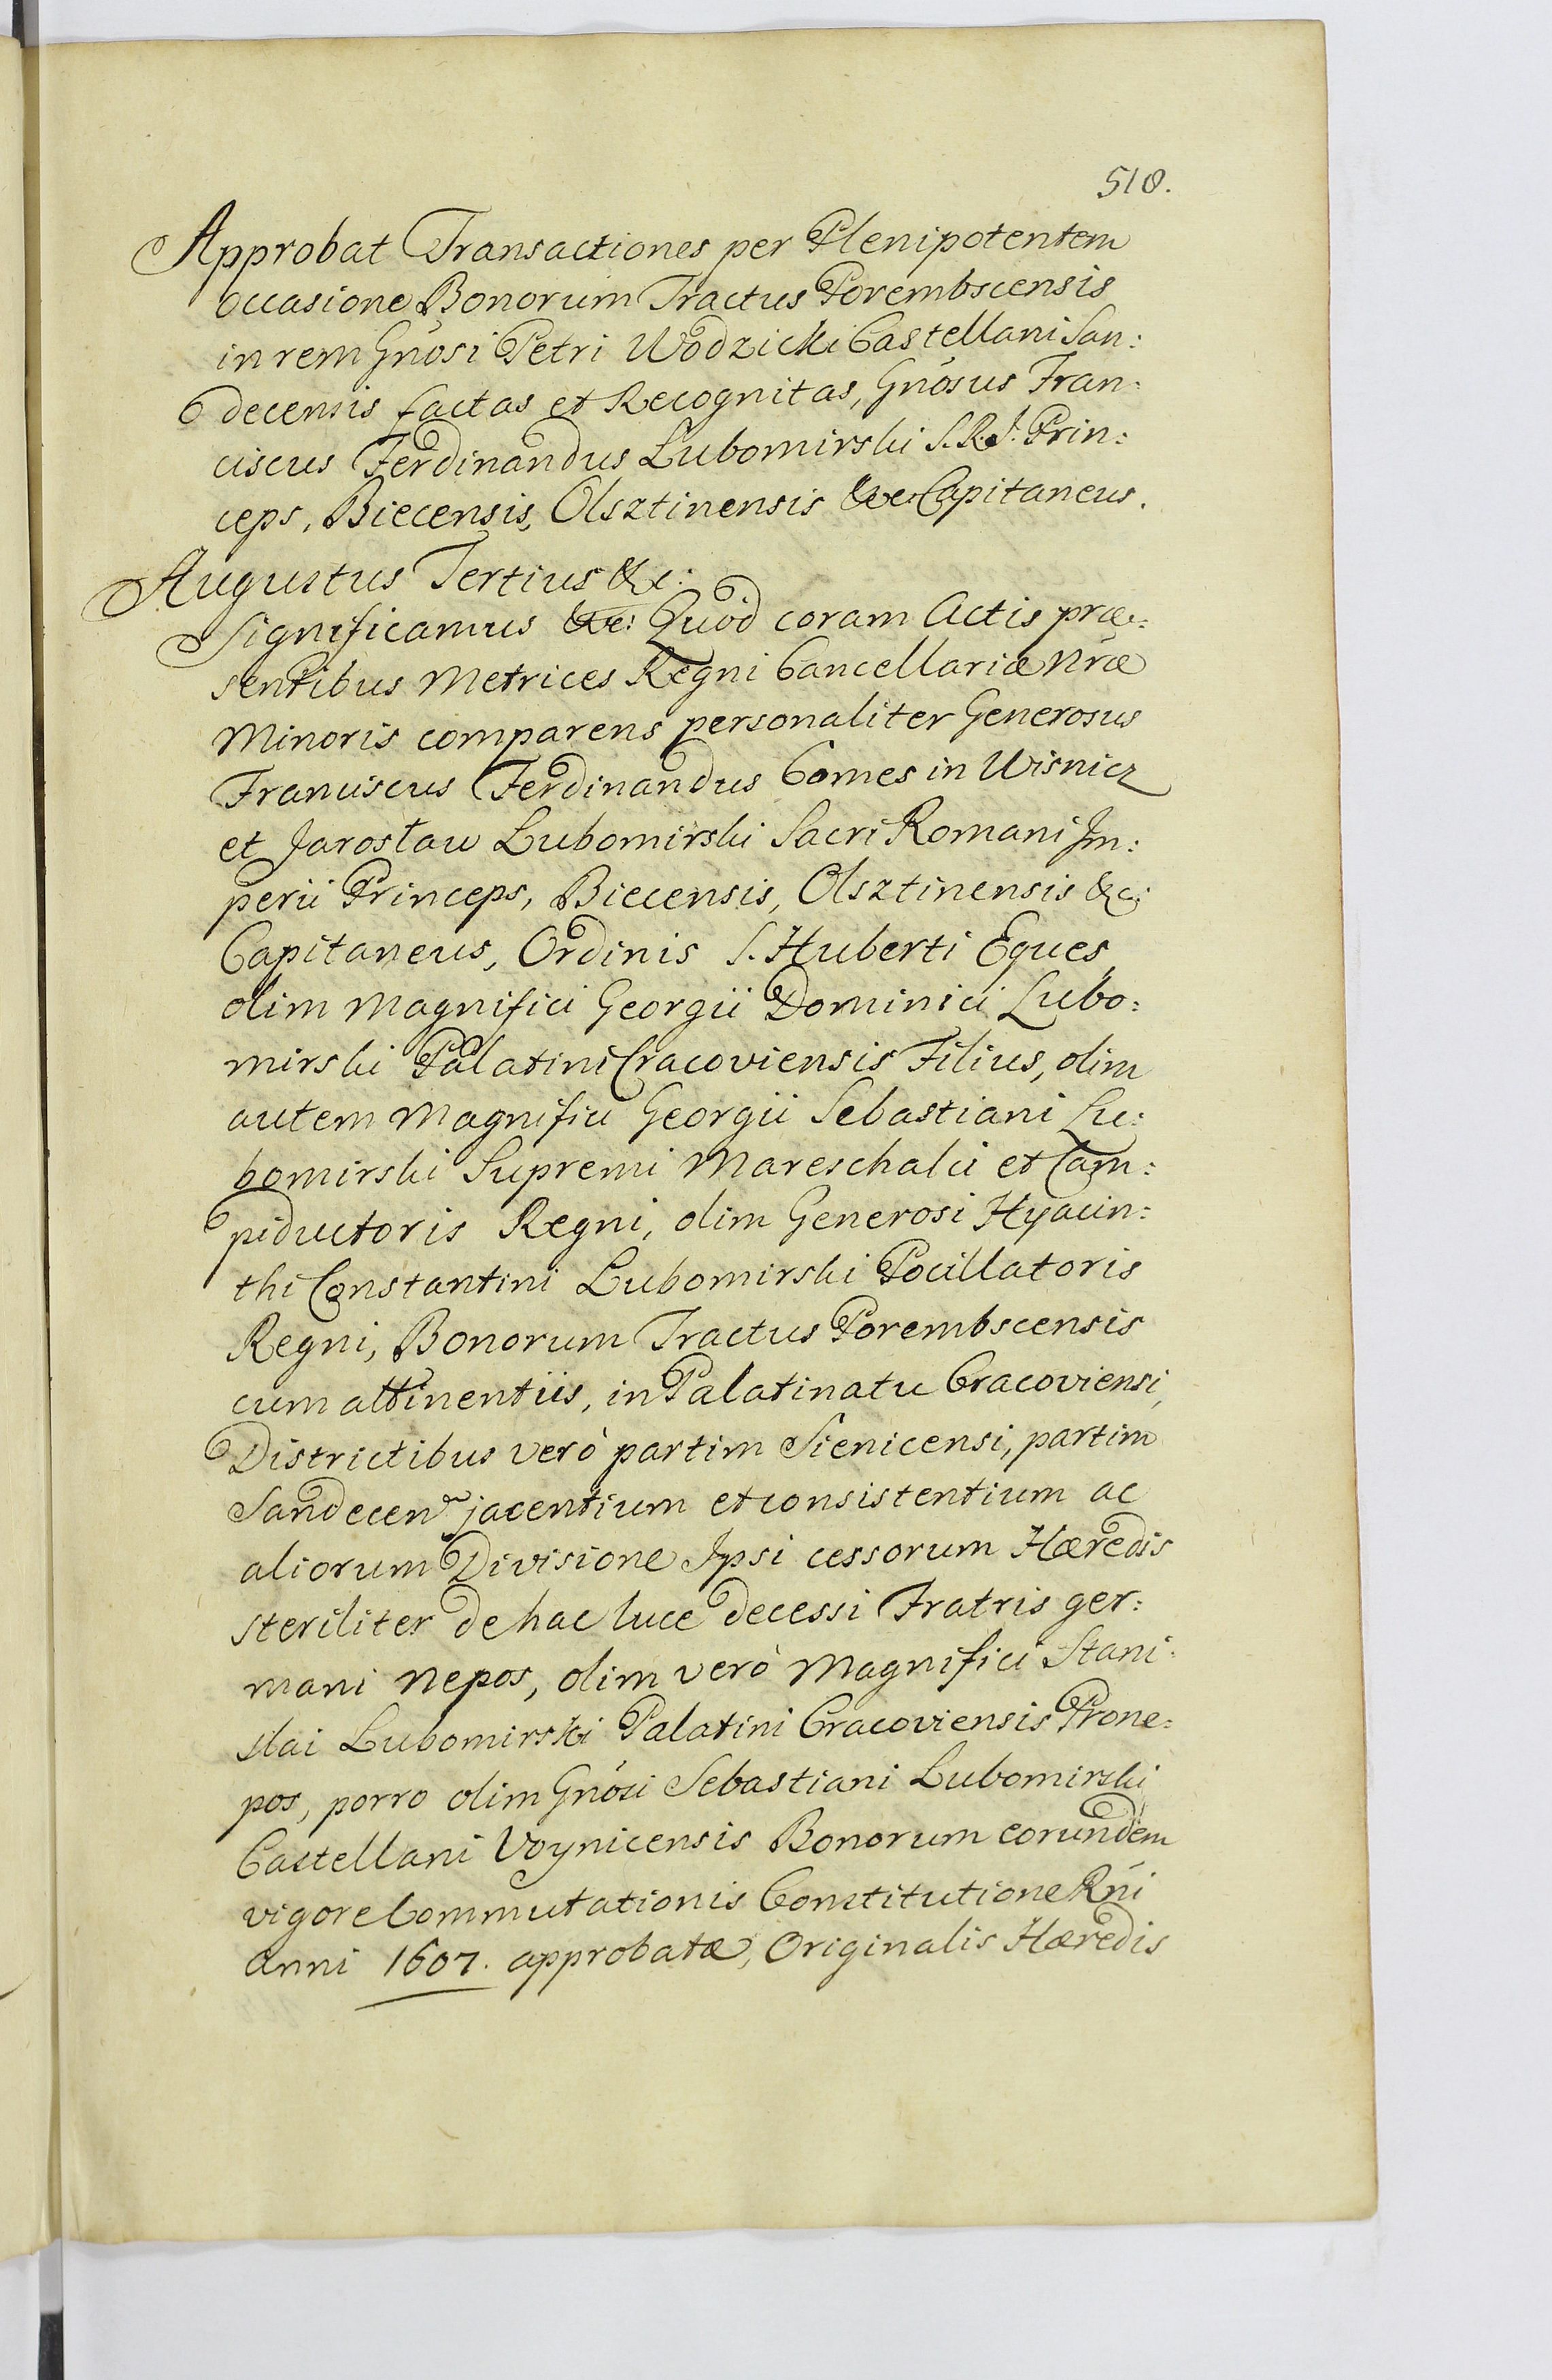 518.
Approbat Transactiones per Plenipotentem
occasione Bonorum Tractus Porembscensis
in rem Gnosi Petri Wodzicki Castellani San:
decensis factas et Recognitas, Gnosus Fran:
ciscus Ferdinandus Lubomirski S.R.J. Prin:
ceps, Biecensis, Olsztinensis &c: Capitaneus.
Augustus Tertius &c:
Significamus &c: Quod coram Actis præ:
sentibus Metrices Regni Cancellariæ Nræ
Minoris comparens personaliter Generosus
Franciscus Ferdinandus Comes in Wisnicz
et Jarosław Lubomirski Sacri Romani Im:
perii Princeps, Biecensis, Olsztinensis &c:
Capitaneus, Ordinis S. Huberti Eques,
olim Magnifici Georgii Dominici Lubo:
mirski Palatini Cracoviensis Filius, olim
autem Magnifici Georgii Sebastiani Lu:
bomirski Supremi Mareschalci et Cam:
piductoris Regni, olim Generosi Hyacin:
thi Constantini Lubomirski Pocillatoris
Regni, Bonorum Tractus Porembscensis
cum attinentiis, in Palatinatu Cracoviensi,
Districtibus verò partim Sienicensi, partim
Sandecen jacentium et consistentium ac
aliorum Divisione Ipsi cessorum Hæredis
steriliter de hac luce decessi Fratris ger:
mani Nepos, olim verò Magnifici Stani:
slai Lubomirski Palatini Cracoviensis Prone:
pos, porro olim Gnosi Sebastiani Lubomirski
Castellani Voynicensis Bonorum eorundem
vigore Commutationis Constitutione Rni
Anni 1607. approbatæ, Originalis Hæredis